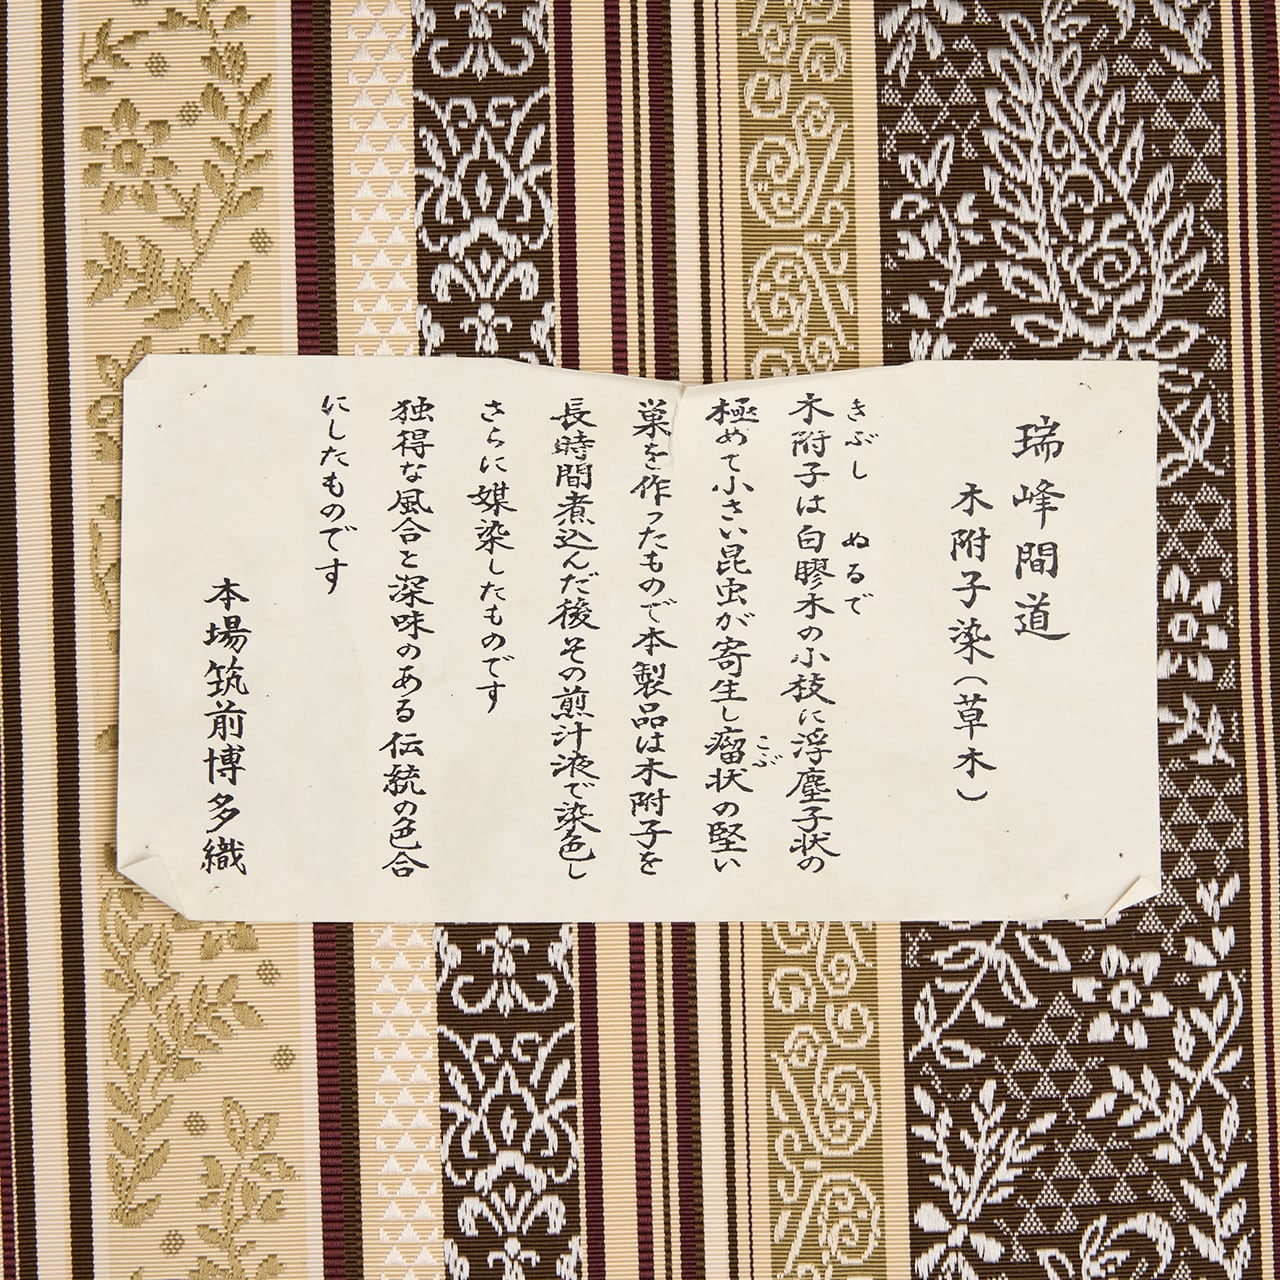 瑞峰間道
木附子染(草木)
きぶし ぬるで
木附子は白膠木の小枝に浮塵子状の
極めて小さい昆虫が寄生し瘤状の堅い
こぶ
巣を作ったもので本製品は木附子を
長時間煮込んだ後その煎汁液で染色し
さらに媒染したものです
独得な風合と深味のある伝統の色合
にしたものです
本場筑前博多織